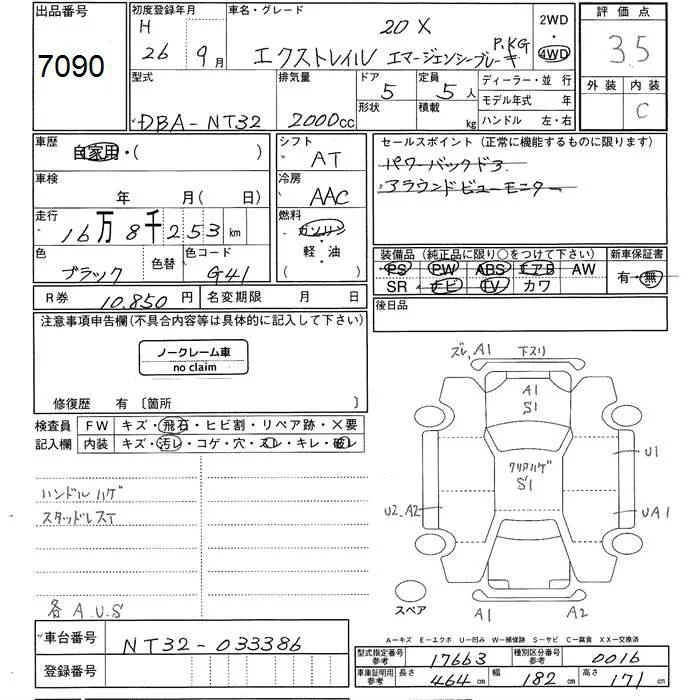 出品番号
7090
初度登録年月
H
26 9月
車名・グレード
20X
エクストレイル エマージェンシーブレーキ P.KG
2WD
・
4WD
評価点
3.5
外装 内装
C
型式
DBA-NT32
排気量
2000cc
ドア
5
形状
定員
5人
積載
kg
ディーラー・並 行
モデル年式 年
ハンドル 左・右
車歴
自家用・( )
車検
年 月( 日)
走行
16万8千253km
色
ブラック
色替
色コード
G41
シフト
AT
冷房
AAC
燃料
ガソリン
軽・油
( )
セールスポイント (正常に機能するものに限ります)
パワーバックドア
アラウンドビューモニター
装備品 (純正品に限り○をつけて下さい)
PS PW ABS エアB AW
SR ナビ TV カワ
新車保証書
有・無
後日品
R券 10,850円
名変期限 月 日
注意事項申告欄(不具合内容等は具体的に記入して下さい)
ノークレーム車
no claim
修復歴 有 〔箇所 〕
検査員
記入欄
FW キズ・飛石・ヒビ割・リペア跡・X要
内装 キズ・汚レ・コゲ・穴・スレ・キレ・破レ
ハンドルハゲ
スタッドレスT
各A.U.S
車台番号
NT32-033386
登録番号
ズレ、A1 下スリ
A1
S1
クリアハゲ
S1
U1
U2、A2
UA1
スペア
A1 A2
A−キズ E−エクボ U−凹み W−補修跡 S−サビ C−腐食 XX−交換済
型式指定番号
参考
17663
種別区分番号
参考
0016
車庫証明用
参考
長さ
464cm
幅
182cm
高さ
171cm